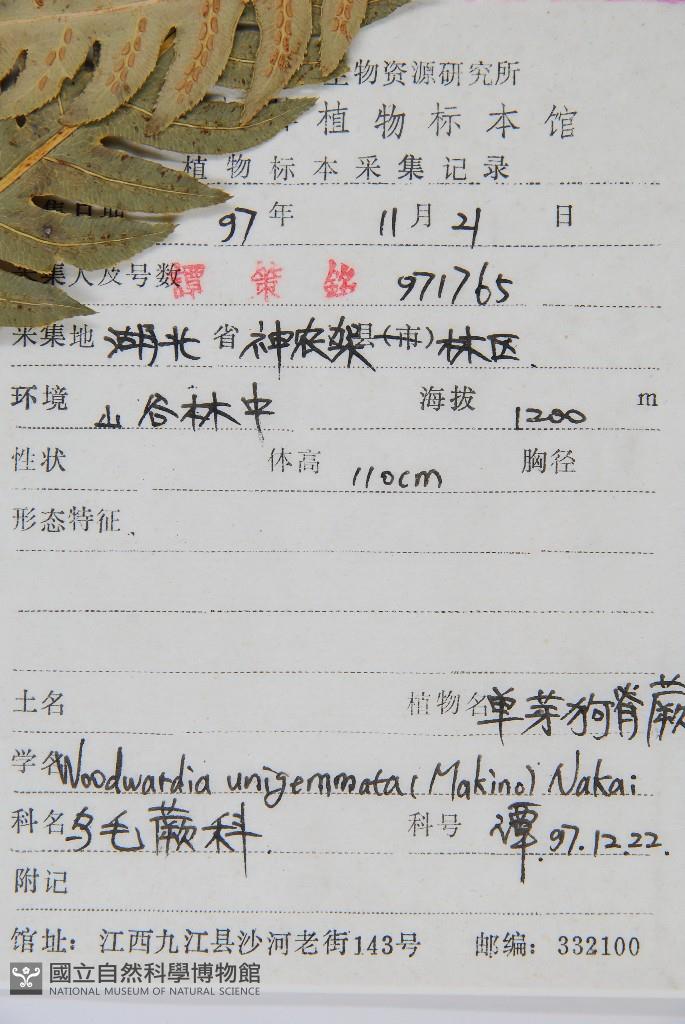 生物资源研究所
植物标本馆
植物标本采集记录
集日期 97年 11月 21 日
采集人及号数 譚策銘 971765
采集地 湖北 省 神农架县(市)林区
环境 山谷林中 海拔 1200 m
性状 体高 110cm 胸径
形态特征
土名 植物名 单芽狗脊蕨
学名 Woodwardia unigemmata (Makino) Nakai
科名 乌毛蕨科 科号 谭.97.12.22.
附记
馆址：江西九江县沙河老街143号 邮编：332100
國立自然科學博物館
NATIONAL MUSEUM OF NATURAL SCIENCE